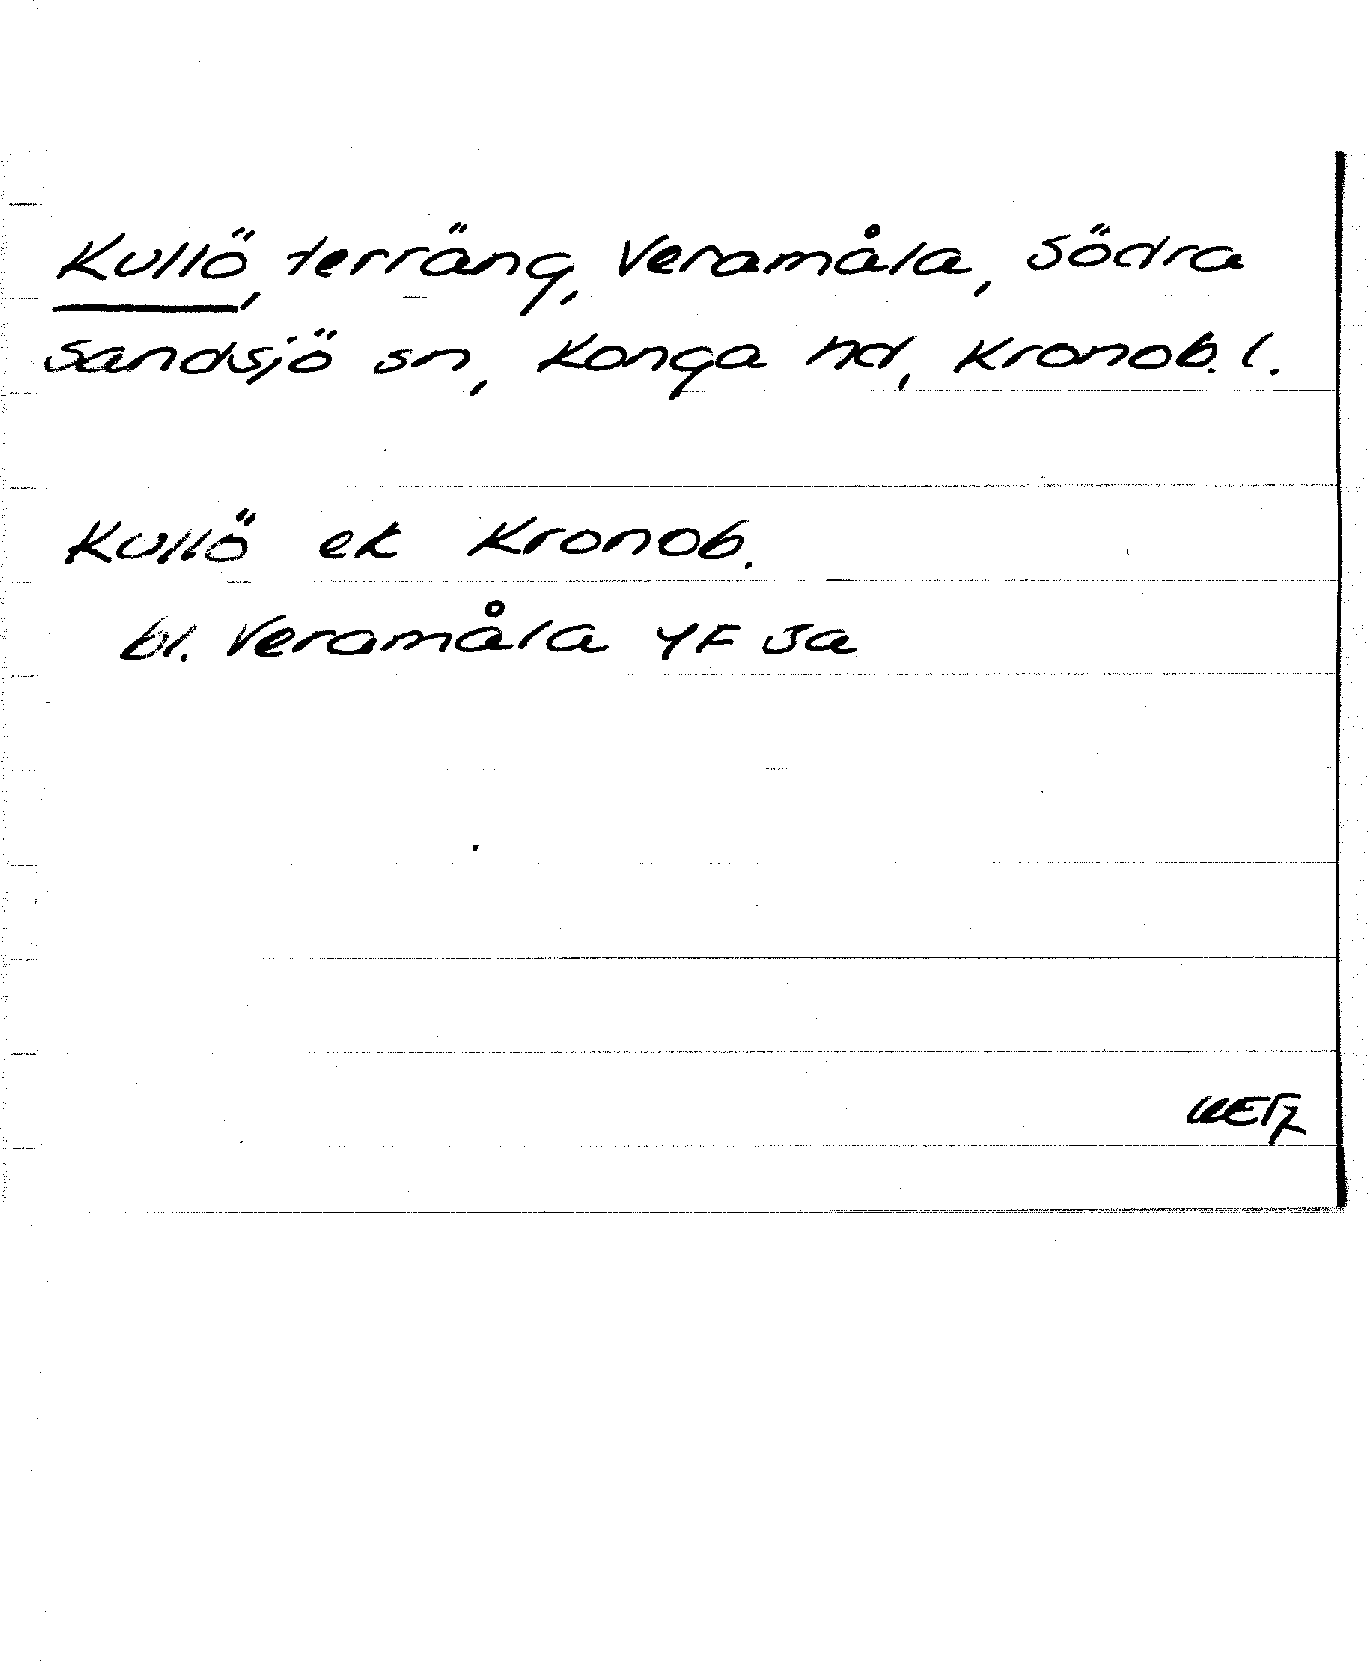 Kullö, terräng, Veramåla, Södra
Sandsjö sn, Konga hd, Kronob. l.
Kullö ek Kronob.
bl. Veramåla YF Ja